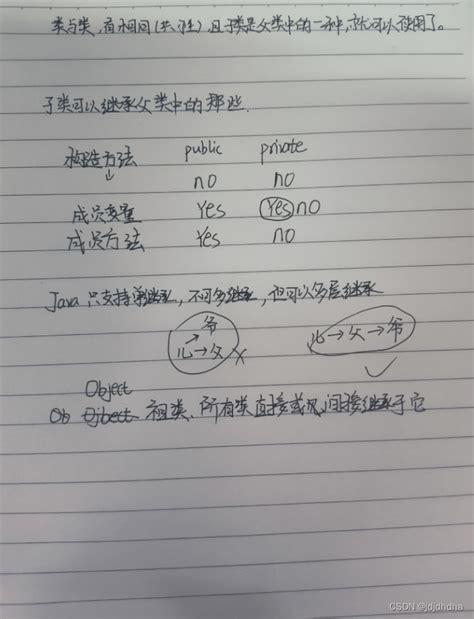 类与类,有相同(共性)且子类是父类中的一种,就可以使用了。
子类可以继承父类中的那些.
构造方法 public private
↓ no no
成员变量 Yes Yes no
成员方法 Yes no
Java 只支持单继承,不可多继承,但可以多层继承
爷
儿→父 ×
儿→父→爷
✓
Object
Ob 祖类、所有类直接或间接继承于它
CSDN @jdjdhdha